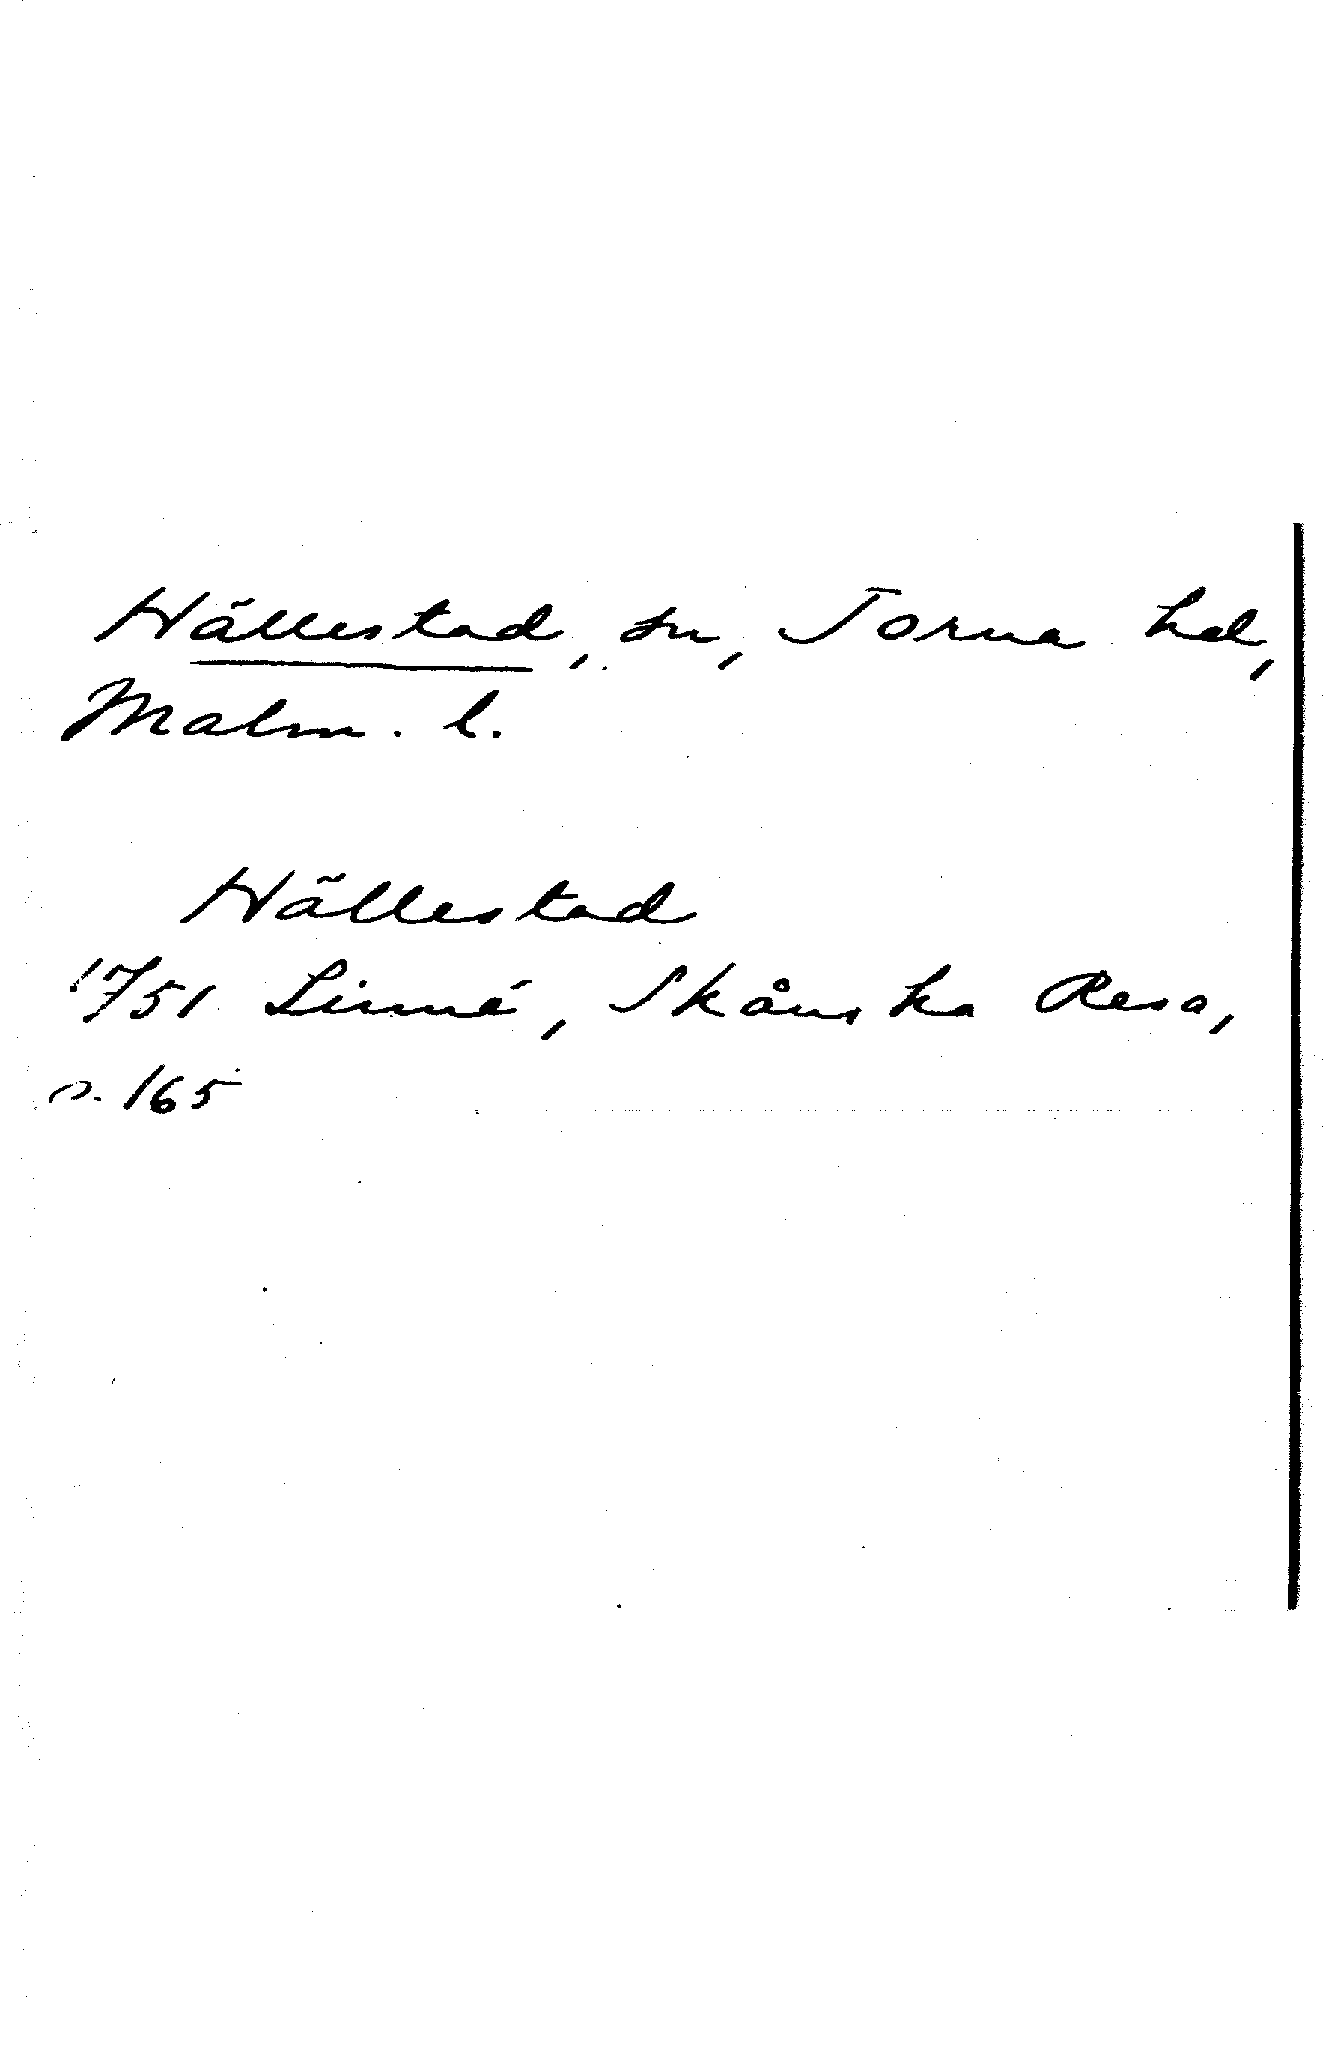 Hällestad, sn, Torna hd,
Malm. l.
Hällestad
1751 Linné, Skånska Resa,
s. 165